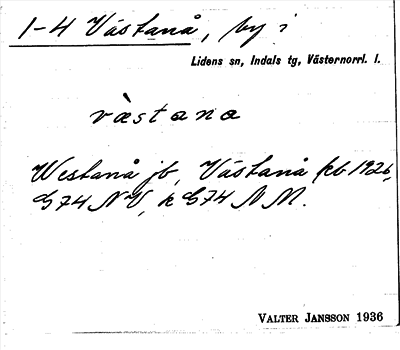 1-4 Västanå, by i
Lidens sn, Indals tg, Västernorrl. l.
vàstana
Westanå jb, Västanå kb 1926,
G74 NV, k G74 NM.
VALTER JANSSON 1936